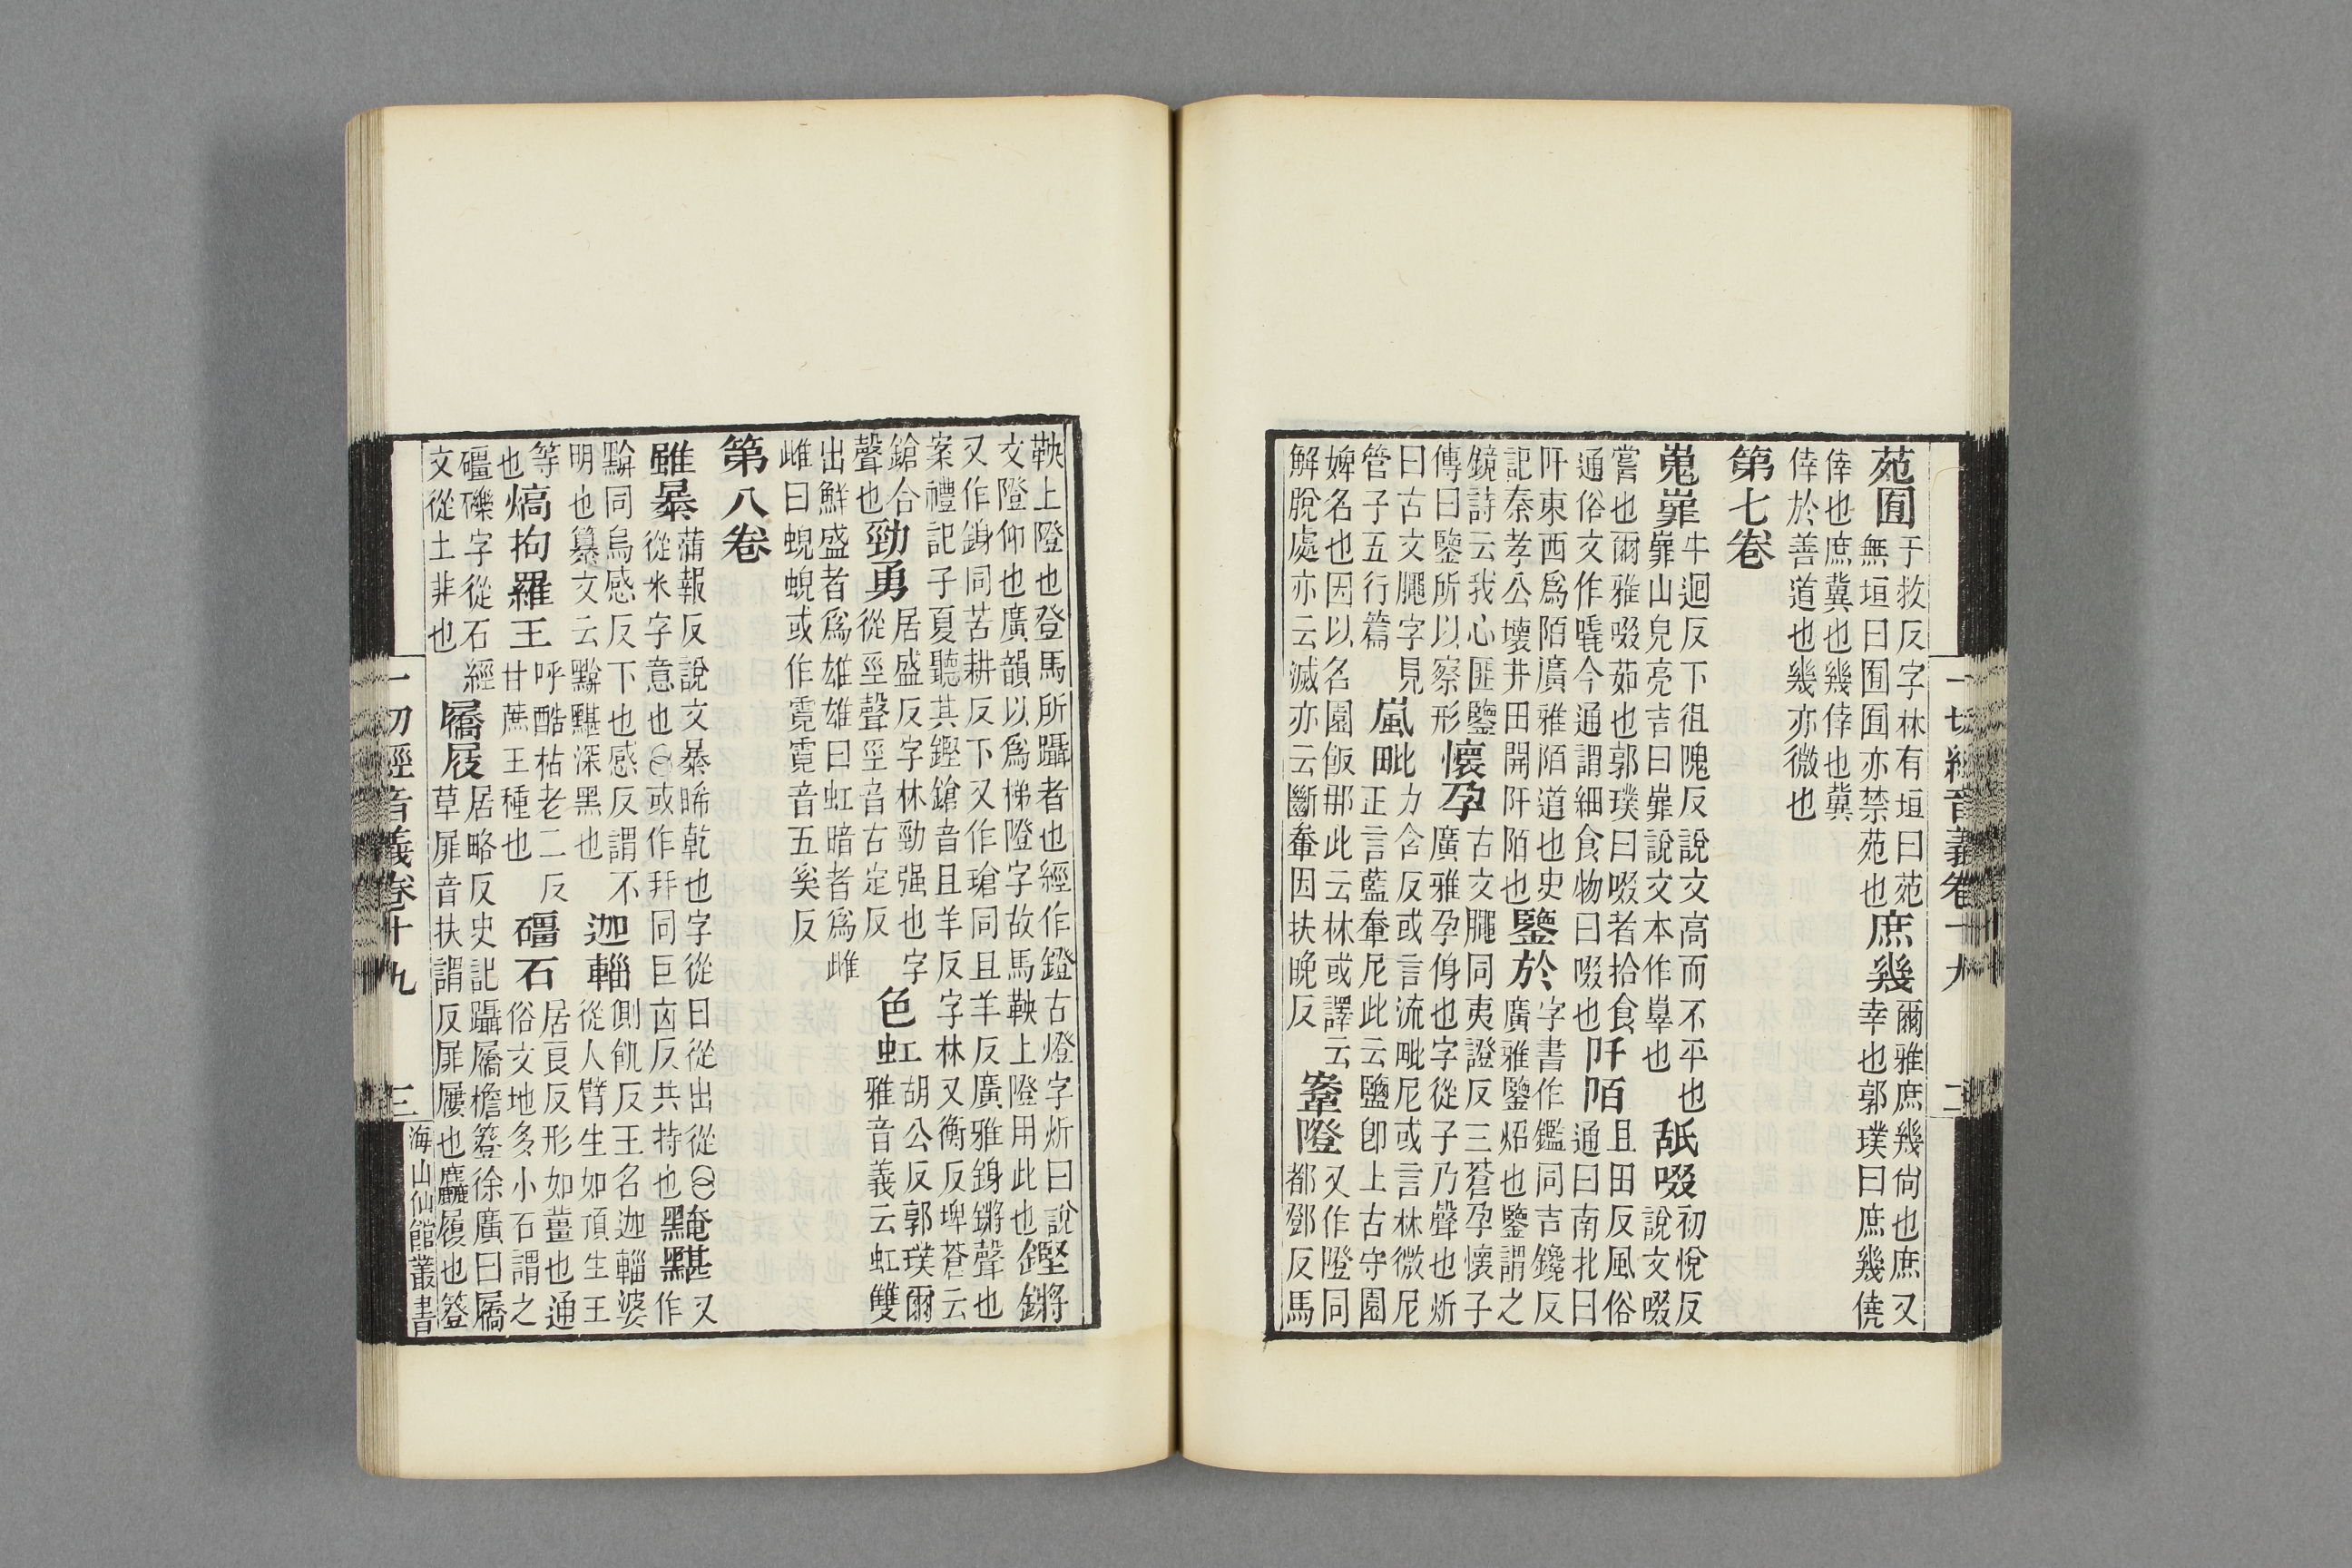 一切經音義卷十九 二
苑囿于救反字林有垣曰苑無垣曰囿囿亦禁苑也庶幾爾雅庶幾尚也庶又幸也郭璞曰庶幾僥
倖也庶冀也幾倖也冀倖於善道也幾亦微也
第七卷
嵬嶵牛迴反下徂隗反說文高而不平也嶵山皃亮吉曰嶵說文本作辠也舐啜初悅反說文啜
嘗也爾雅啜茹也郭璞曰啜者拾食也通俗文作今通謂細食物曰啜也阡陌且田反風俗通曰南北曰
阡東西爲陌廣雅陌道也史記秦孝公壞井田開阡陌也鑒於字書作鑑同吉鑱反廣雅鑒炤也鑒謂之
鏡詩云我心匪鑒傳曰鑒所以察形懷孕古文同夷證反三蒼孕懷子廣雅孕㑗也字從子乃聲也炘
曰古文字見管子五行篇嵐毗力含反或言流毗尼或言林微尼正言藍鞞尼此云鹽卽上古守園
婢名也因以名園飯那此云林或譯云解脫處亦云滅亦云斷鞞因扶晚反鞌隥又作隥同都鄧反馬
鞅上隥也登馬所躡者也經作鐙古燈字炘曰說文隥仰也廣韻以爲梯隥字故馬鞅上隥用此也鏗鏘
又作鍞同苦耕反下又作瑲同且羊反廣雅鍞鏘聲也案禮記子夏聽其鏗鎗音且羊反字林又衡反埤蒼云
鎗合聲也勁勇居盛反字林勁强也字從巠聲巠音古定反色虹胡公反郭璞爾雅音義云虹雙
出鮮盛者爲雄雄曰虹暗者爲雌雌曰蜺蜺或作霓霓音五奚反
第八卷
雖暴蒲報反說文暴晞乾也字從日從出從從米字意也或作同巨凶反共持也黤黮又作
黭同烏感反下他感反謂不明也纂文云黭黮深黑也迦輜側飢反王名迦輜婆從人臂生如頂生王
等也熇拘羅王呼酷枯老二反甘蔗王種也礓石居良反形如薑也通俗文地多小石謂之
礓礫字從石經文從土非也屩屐居略反史記躡屩檐簦徐廣曰屩草屝音扶謂反屝屨也麤履也簦
一切經音義卷十九 三 海山仙館叢書